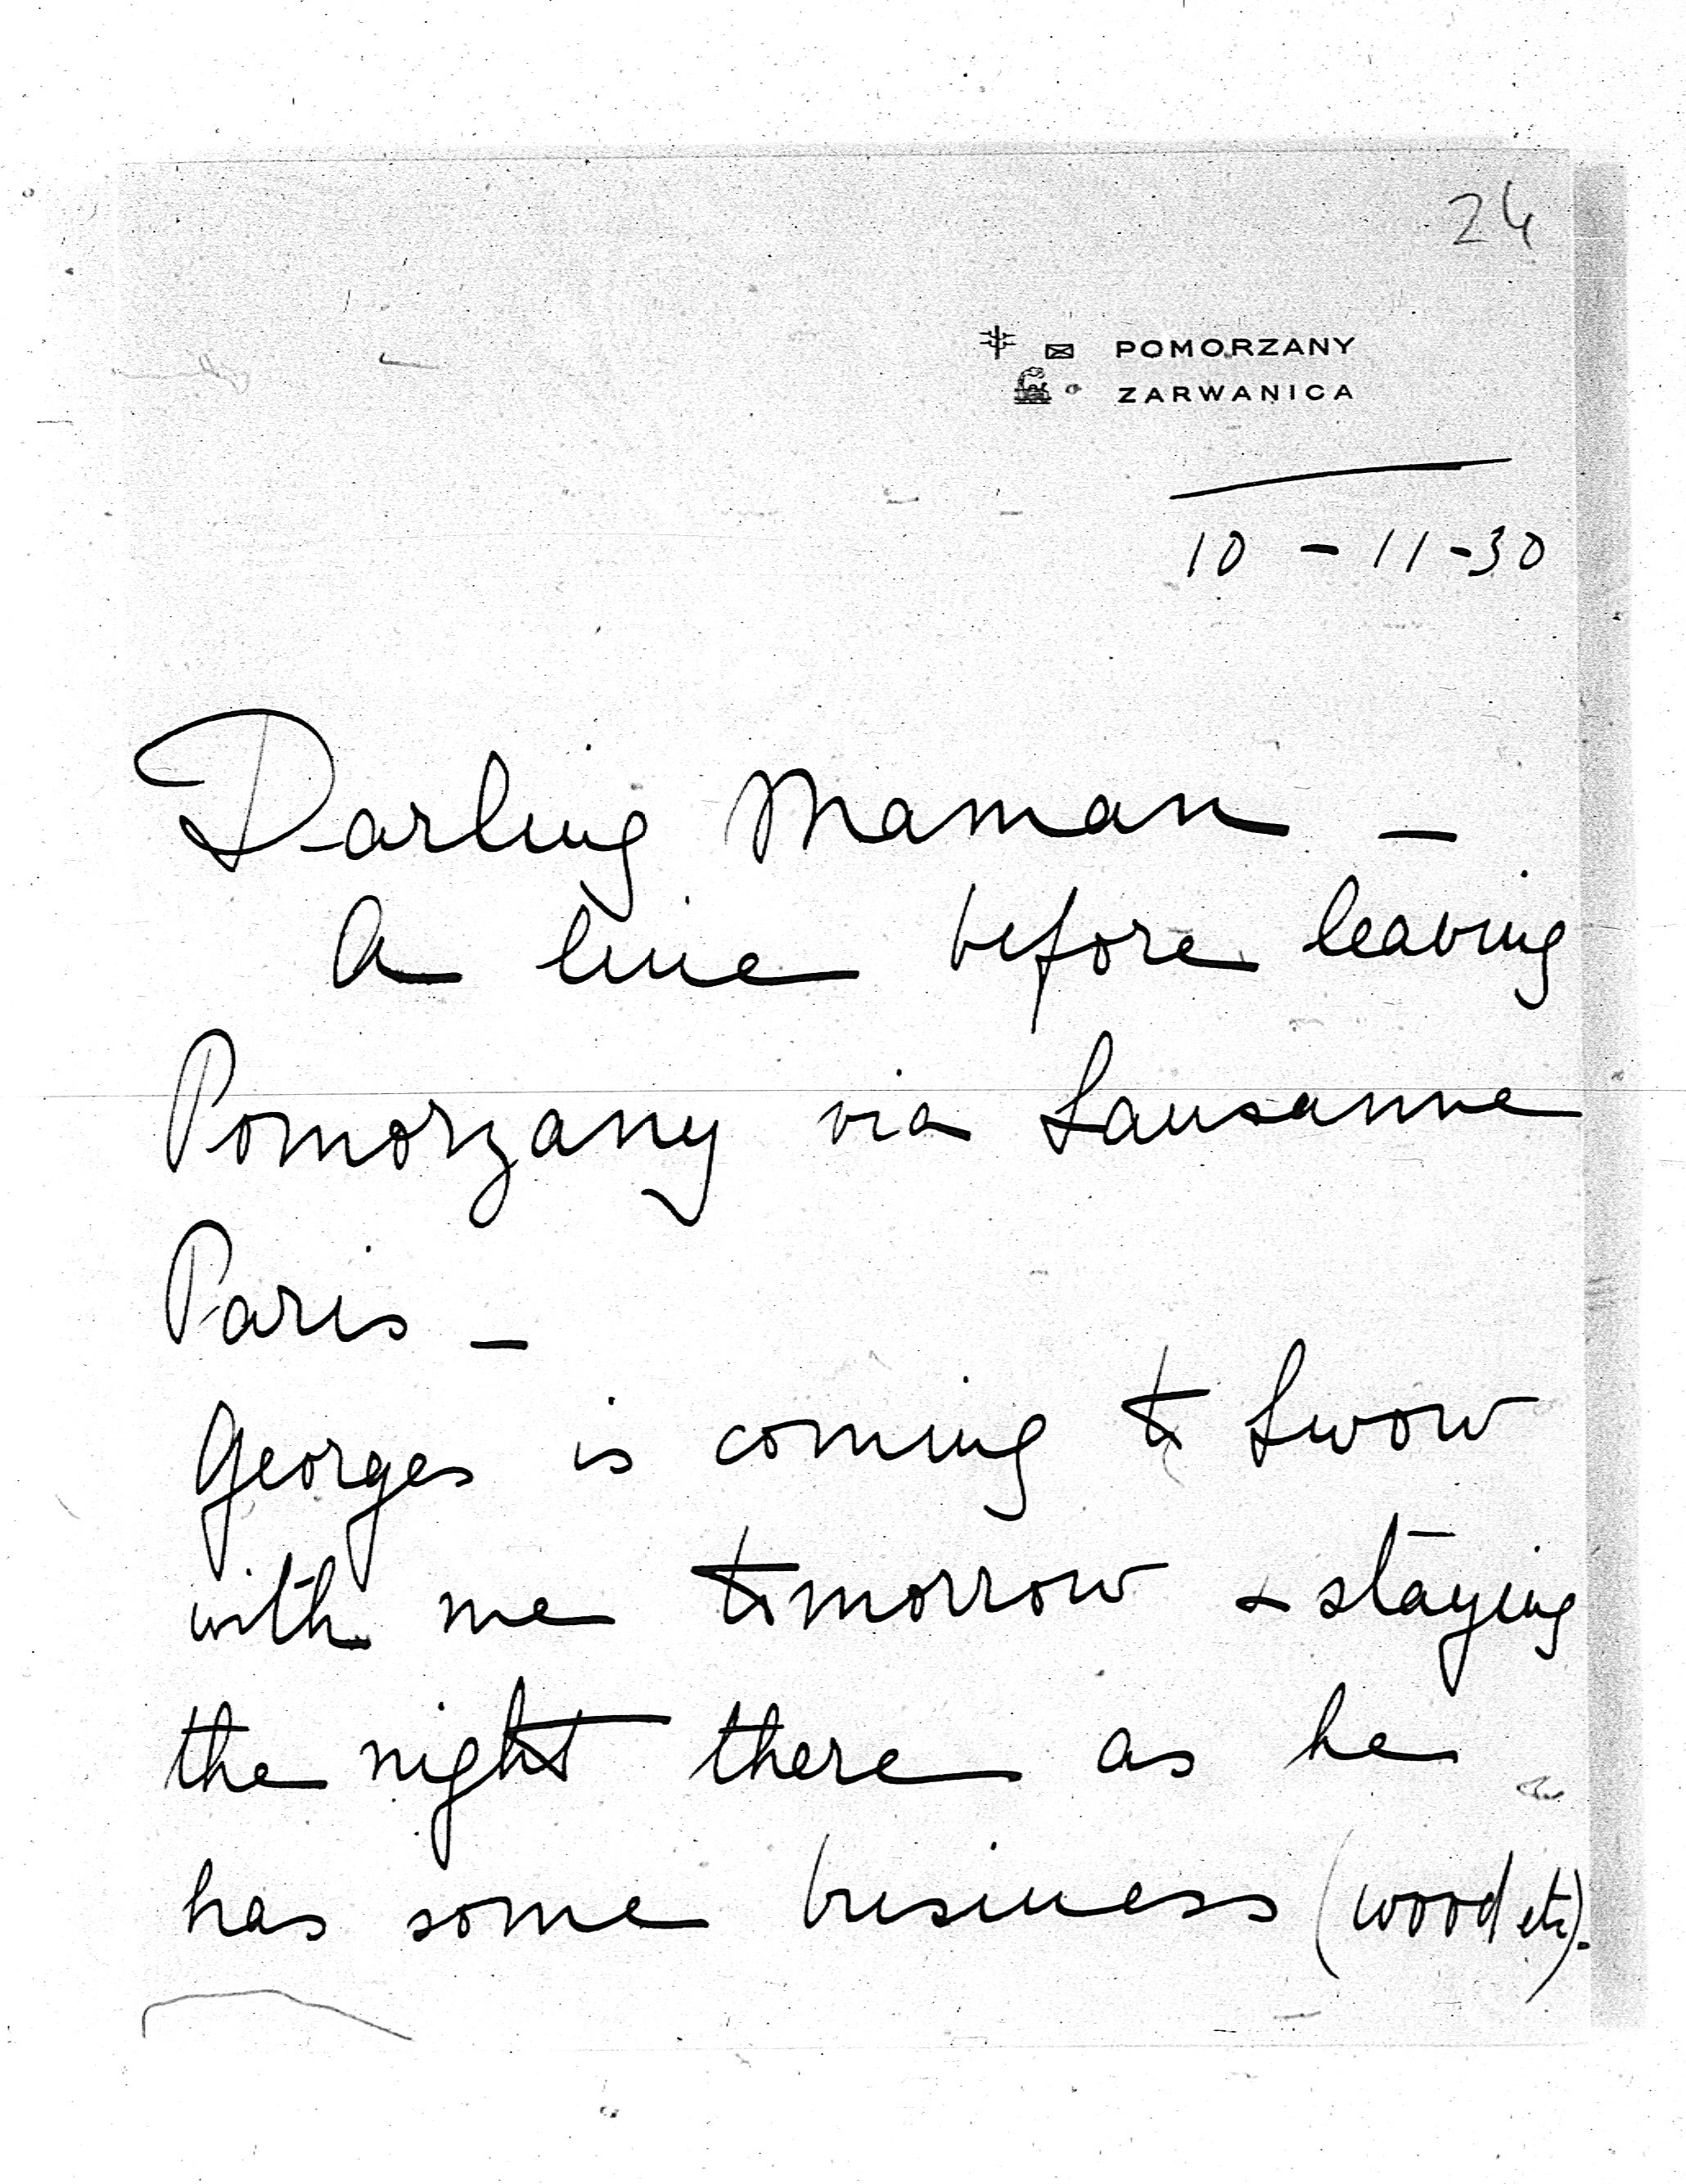 24
POMORZANY
ZARWANICA
10 - 11 - 30
Darling Maman —
A line before leaving
Pomorzany via Lausanne
Paris —
Georges is coming to Lwow
with me tomorrow & staying
the night there as he
has some business (wood etc).